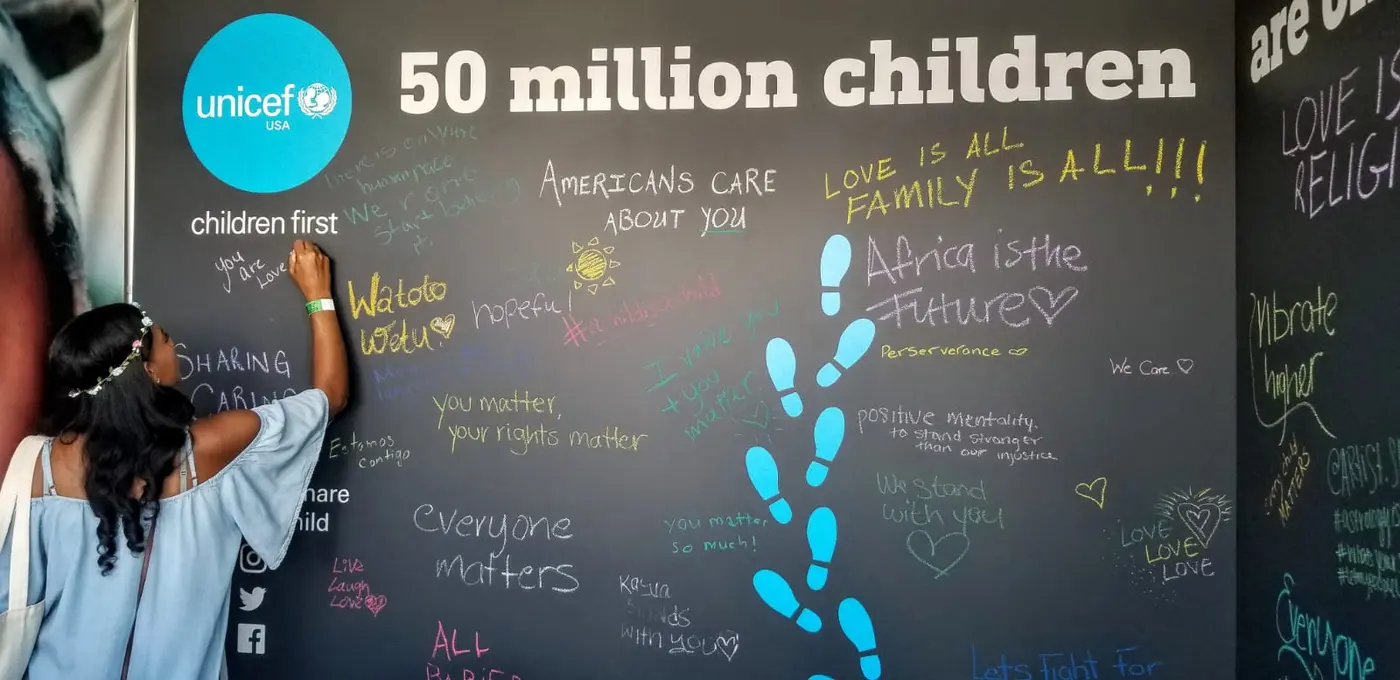 unicef
USA
50 million children
are on
children first
There is only one
human race
We r one
start being
AMERICANS CARE
ABOUT YOU
LOVE IS ALL
FAMILY IS ALL!!!
LOVE IS
RELIGI
you
are
Love
Watoto
Wetu
hopeful!
Africa is the
Future
Perserverance
We Care
Vibrate
higher
SHARING
CARING
I love you
+ you
matter
you matter,
your rights matter
positive mentality.
to stand stronger
than our injustice
Estamos
contigo
every child
MATTERS
hare
hild
everyone
matters
you matter
so much!
We stand
with you
LOVE
LOVE
LOVE
Live
Laugh
Love
with you
ALL
BABIES
Lets Fight For
Everyone